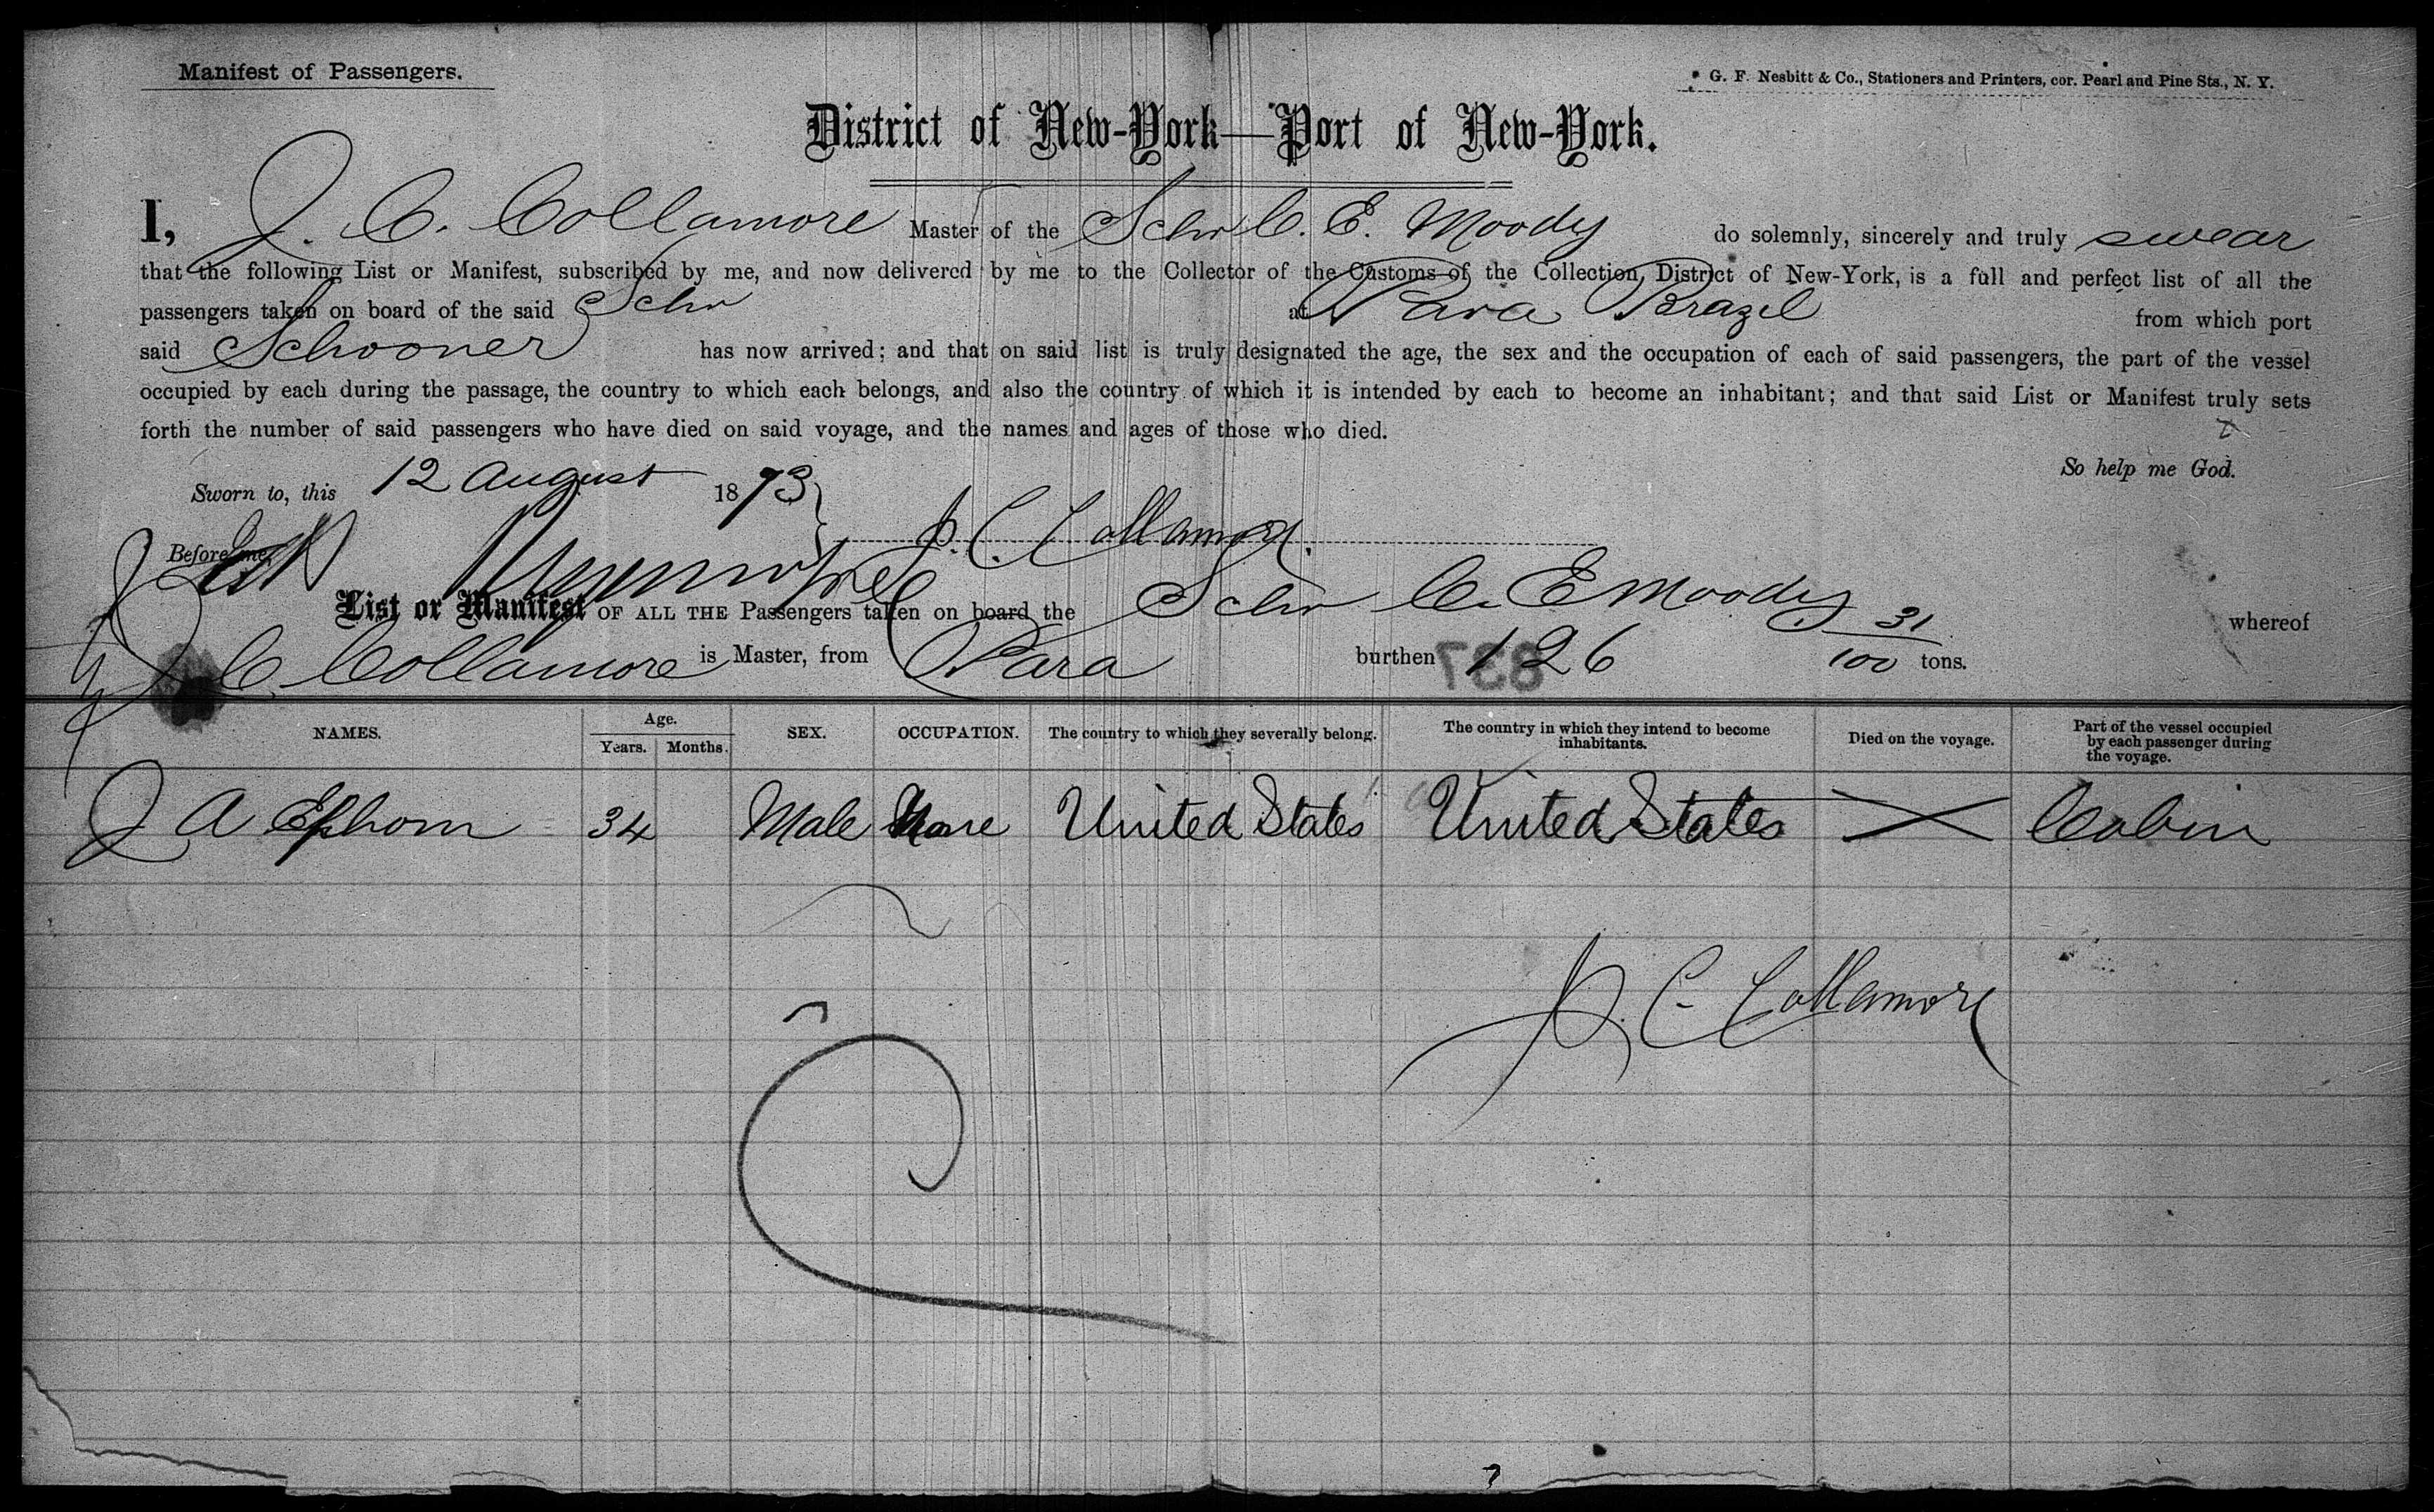 Manifest of Passengers.
G. F. Nesbitt & Co., Stationers and Printers, cor. Pearl and Pine Sts., N. Y.
District of New-York—Port of New-York.
I, J. C. Collamore Master of the Schr C. E. Moody do solemnly, sincerely and truly swear
that the following List or Manifest, subscribed by me, and now delivered by me to the Collector of the Customs of the Collection District of New-York, is a full and perfect list of all the
passengers taken on board of the said Schr at Para Brazil from which port
said Schooner has now arrived; and that on said list is truly designated the age, the sex and the occupation of each of said passengers, the part of the vessel
occupied by each during the passage, the country to which each belongs, and also the country of which it is intended by each to become an inhabitant; and that said List or Manifest truly sets
forth the number of said passengers who have died on said voyage, and the names and ages of those who died.
So help me God.
Sworn to, this 12 August 1873
J. C. Collamore
Before me,
List or Manifest OF ALL THE Passengers taken on board the Schr C. E Moody whereof
J C. Collamore is Master, from Para burthen 126 31/100 tons.
837
NAMES. Age. Years. Months. SEX. OCCUPATION. The country to which they severally belong. The country in which they intend to become inhabitants. Died on the voyage. Part of the vessel occupied by each passenger during the voyage.
J A Ephom 34 Male None United States United States Cabin
J. C. Collamore